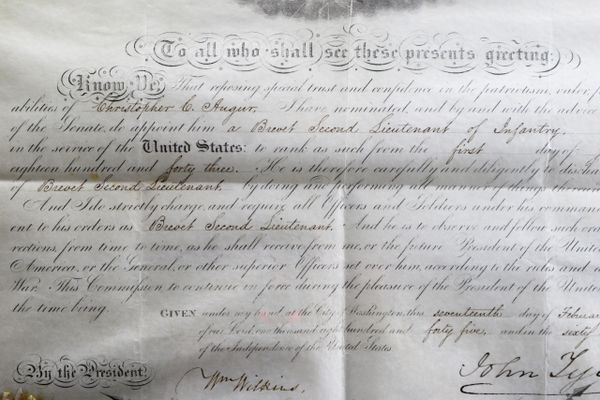 To all who shall see these presents greeting:
Know Ye, That reposing special trust and confidence in the patriotism, valor,
abilities of Christopher C. Augur, I have nominated, and by and with the advice
of the Senate, do appoint him a Brevet Second Lieutenant of Infantry,
in the service of the United States: to rank as such from the first day of
eighteen hundred and forty three. He is therefore carefully and diligently to
of Brevet Second Lieutenant, by doing and performing all manner of things
And I do strictly charge, and require all Officers and Soldiers under his
ent to his orders as Brevet Second Lieutenant. And he is to observe and follow such
rections, from time to time, as he shall receive from me, or the future President of the
America, or the General, or other superior Officers set over him, according to the rules and
War. This Commission to continue in force during the pleasure of the President of the United
the time being.
GIVEN under my hand, at the City of Washington, this seventeenth day of
of our Lord, one thousand eight hundred and forty five, and in the sixty
of the Independence of the United States
By the President
John
Wm Wilkins.